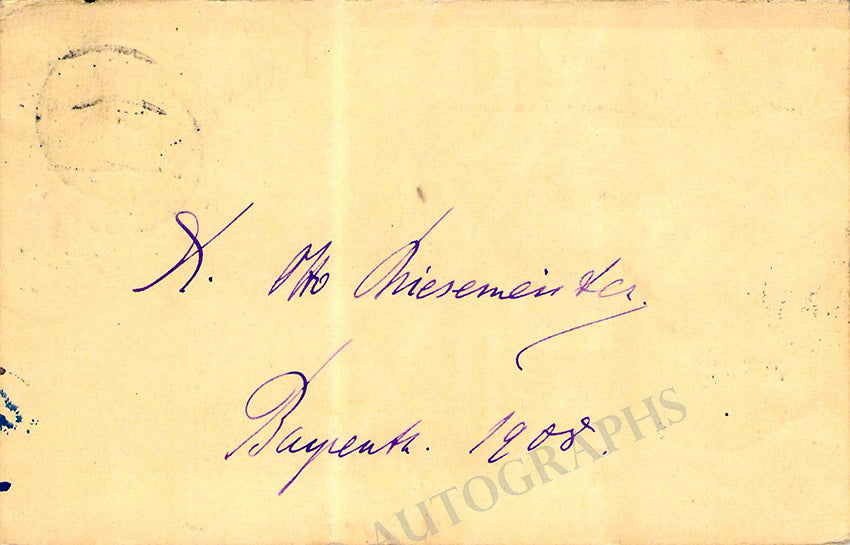 K. Otto Briesemeister.
Bayreuth. 1908.
AUTOGRAPHS